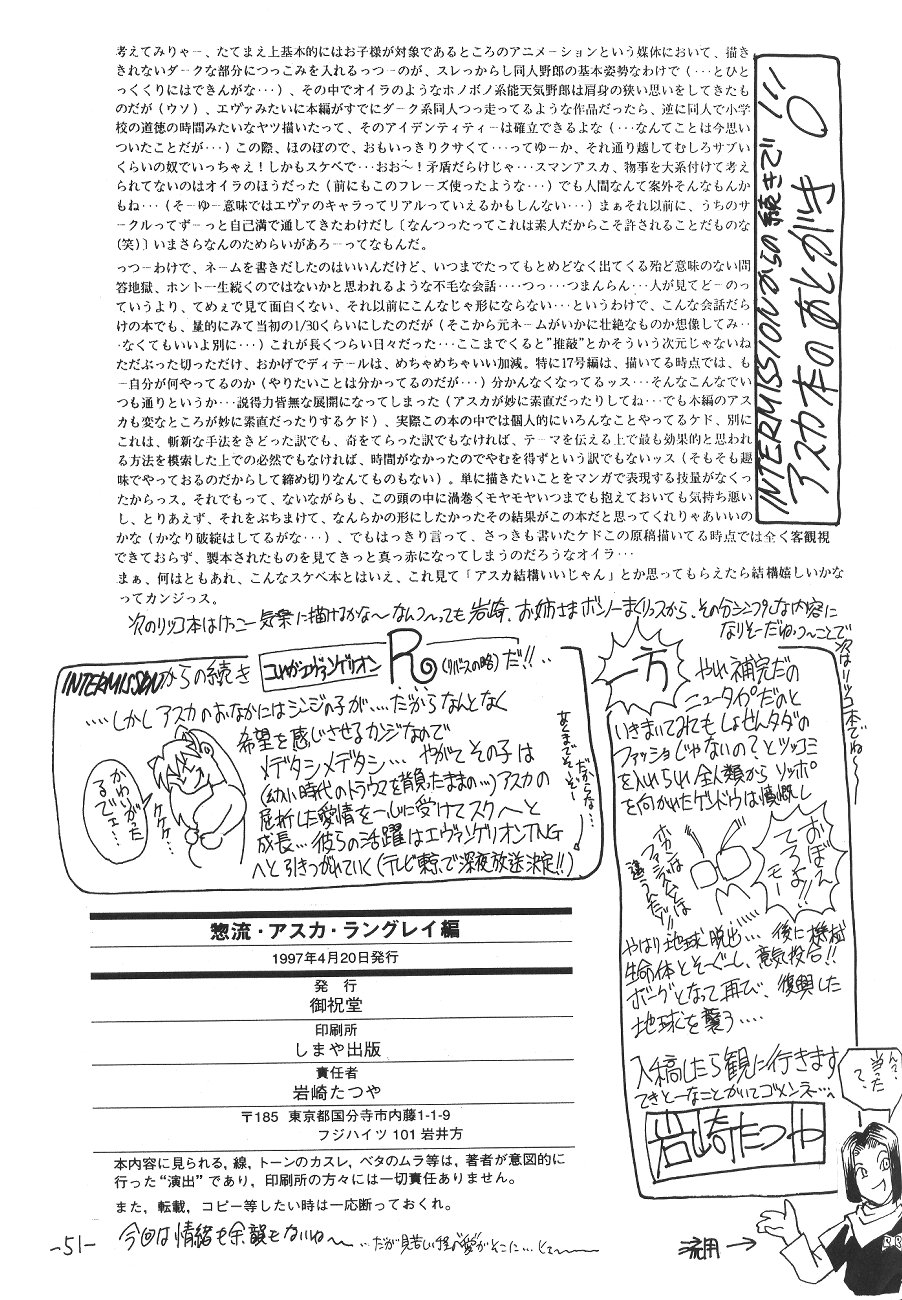 INTERMISSIONからの続きで!!
アスカ本のあとがき
考えてみりゃー、たてまえ上基本的にはお子様が対象であるところのアニメーションという媒体において、描き
きれないダークな部分につっこみを入れるっつーのが、スレっからし同人野郎の基本姿勢なわけで(…とひと
っくくりにはできんがな…)、その中でオイラのようなホノボノ系能天気野郎は肩身の狭い思いをしてきたも
のだが(ウソ)、エヴァみたいに本編がすでにダーク系同人つっ走ってるような作品だったら、逆に同人で小学
校の道徳の時間みたいなヤツ描いたって、そのアイデンティティーは確立できるよな(…なんてことは今思い
ついたことだが…)この際、ほのぼので、おもいっきりクサくて…ってゆーか、それ通り越してむしろサブい
くらいの奴でいっちゃえ!しかもスケベで…おお〜!矛盾だらけじゃ…スマンアスカ、物事を大系付けて考え
られてないのはオイラのほうだった(前にもこのフレーズ使ったような…)でも人間なんて案外そんなもんか
もね…(そーゆー意味ではエヴァのキャラってリアルっていえるかもしんない…)まぁそれ以前に、うちのサ
ークルってずーっと自己満で通してきたわけだし〔なんつったってこれは素人だからこそ許されることだものな
(笑)〕いまさらなんのためらいがあろーってなもんだ。
っつーわけで、ネームを書きだしたのはいいんだけど、いつまでたってもとめどなく出てくる殆ど意味のない問
答地獄、ホント一生続くのではないかと思われるような不毛な会話‥‥つっ…つまんらん…人が見てどーのっ
ていうより、てめぇで見て面白くない、それ以前にこんなじゃ形にならない…というわけで、こんな会話だら
けの本でも、量的にみて当初の1/30くらいにしたのだが(そこから元ネームがいかに壮絶なものか想像してみ‥
‥なくてもいいよ別に…)これが長くつらい日々だった…ここまでくると"推敲"とかそういう次元じゃないね
ただぶった切っただけ、おかげでディテールは、めちゃめちゃいい加減。特に17号編は、描いてる時点では、も
ー自分が何やってるのか(やりたいことは分かってるのだが…)分かんなくなってるッス…そんなこんなでい
つも通りというか…説得力皆無な展開になってしまった(アスカが妙に素直だったりしてね…でも本編のアス
カも変なところが妙に素直だったりするケド)、実際この本の中では個人的にいろんなことやってるケド、別に
これは、斬新な手法をきどった訳でも、奇をてらった訳でもなければ、テーマを伝える上で最も効果的と思われ
る方法を模索した上での必然でもなければ、時間がなかったのでやむを得ずという訳でもないッス(そもそも趣
味でやっておるのだからして締め切りなんてものもない)。単に描きたいことをマンガで表現する技量がなくっ
たからっス。それでもって、ないながらも、この頭の中に渦巻くモヤモヤいつまでも抱えておいても気持ち悪い
し、とりあえず、それをぶちまけて、なんらかの形にしたかったその結果がこの本だと思ってくれりゃあいいの
かな(かなり破綻はしてるがな…)、でもはっきり言って、さっきも書いたケドこの原稿描いてる時点では全く客観視
できておらず、製本されたものを見てきっと真っ赤になってしまうのだろうなオイラ…
まぁ、何はともあれ、こんなスケベ本とはいえ、これ見て「アスカ結構いいじゃん」とか思ってもらえたら結構嬉しいかな
ってカンジっス。
次のリツコ本はけっこー気楽に描けるかな〜なんつっても岩崎、お姉さまボンノーまくりっスから、その分シンプルな内容に
なりそーだね、つーことで
次はリツコ本でね〜
INTERMISSIONからの続き
エヴァンゲリオン
R(リバースの略)だ!!‥
‥‥しかしアスカのおなかにはシンジの子が…だからなんとなく
希望を感じさせるカンジなので
メデタシメデタシ… やがてその子は
(幼い時代のトラウマを背負ったままの…)アスカの
屈折した愛情を一心に受けてスクスクと
成長…彼らの活躍はエヴァンゲリオンTNG
へと引きつがれていく(テレビ東京で深夜放送決定!!)
かわいがったるでェ…
ケケケ…
一方
やれ補完だの
ニュータイプだのと
いきまいてみてもしょせんタダの
ファッショじゃないの?とツッコミ
を入れられ全人類からソッポ
を向かれたゲンドウは憤慨し
おぼえてろよ!!
モー
ホカンとファシズムは違うんだ!!
やはり地球脱出… 後に機械
生命体とそーぐーし、意気投合!!
ボーグとなって再び、復興した
地球を襲う‥‥
入稿したら観に行きます
てきとーなことかいてゴメンネ…〜
岩崎たつや
ん?
当たって、
流用→
惣流・アスカ・ラングレイ編
1997年4月20日発行
発 行
御祝堂
印刷所
しまや出版
責任者
岩崎たつや
〒185 東京都国分寺市内藤1-1-9
フジハイツ 101 岩井方
本内容に見られる, 線, トーンのカスレ, ベタのムラ等は, 著者が意図的に
行った“演出”であり, 印刷所の方々には一切責任ありません。
また, 転載, コピー等したい時は一応断っておくれ。
今回は情緒も余韻もないね〜
-51-